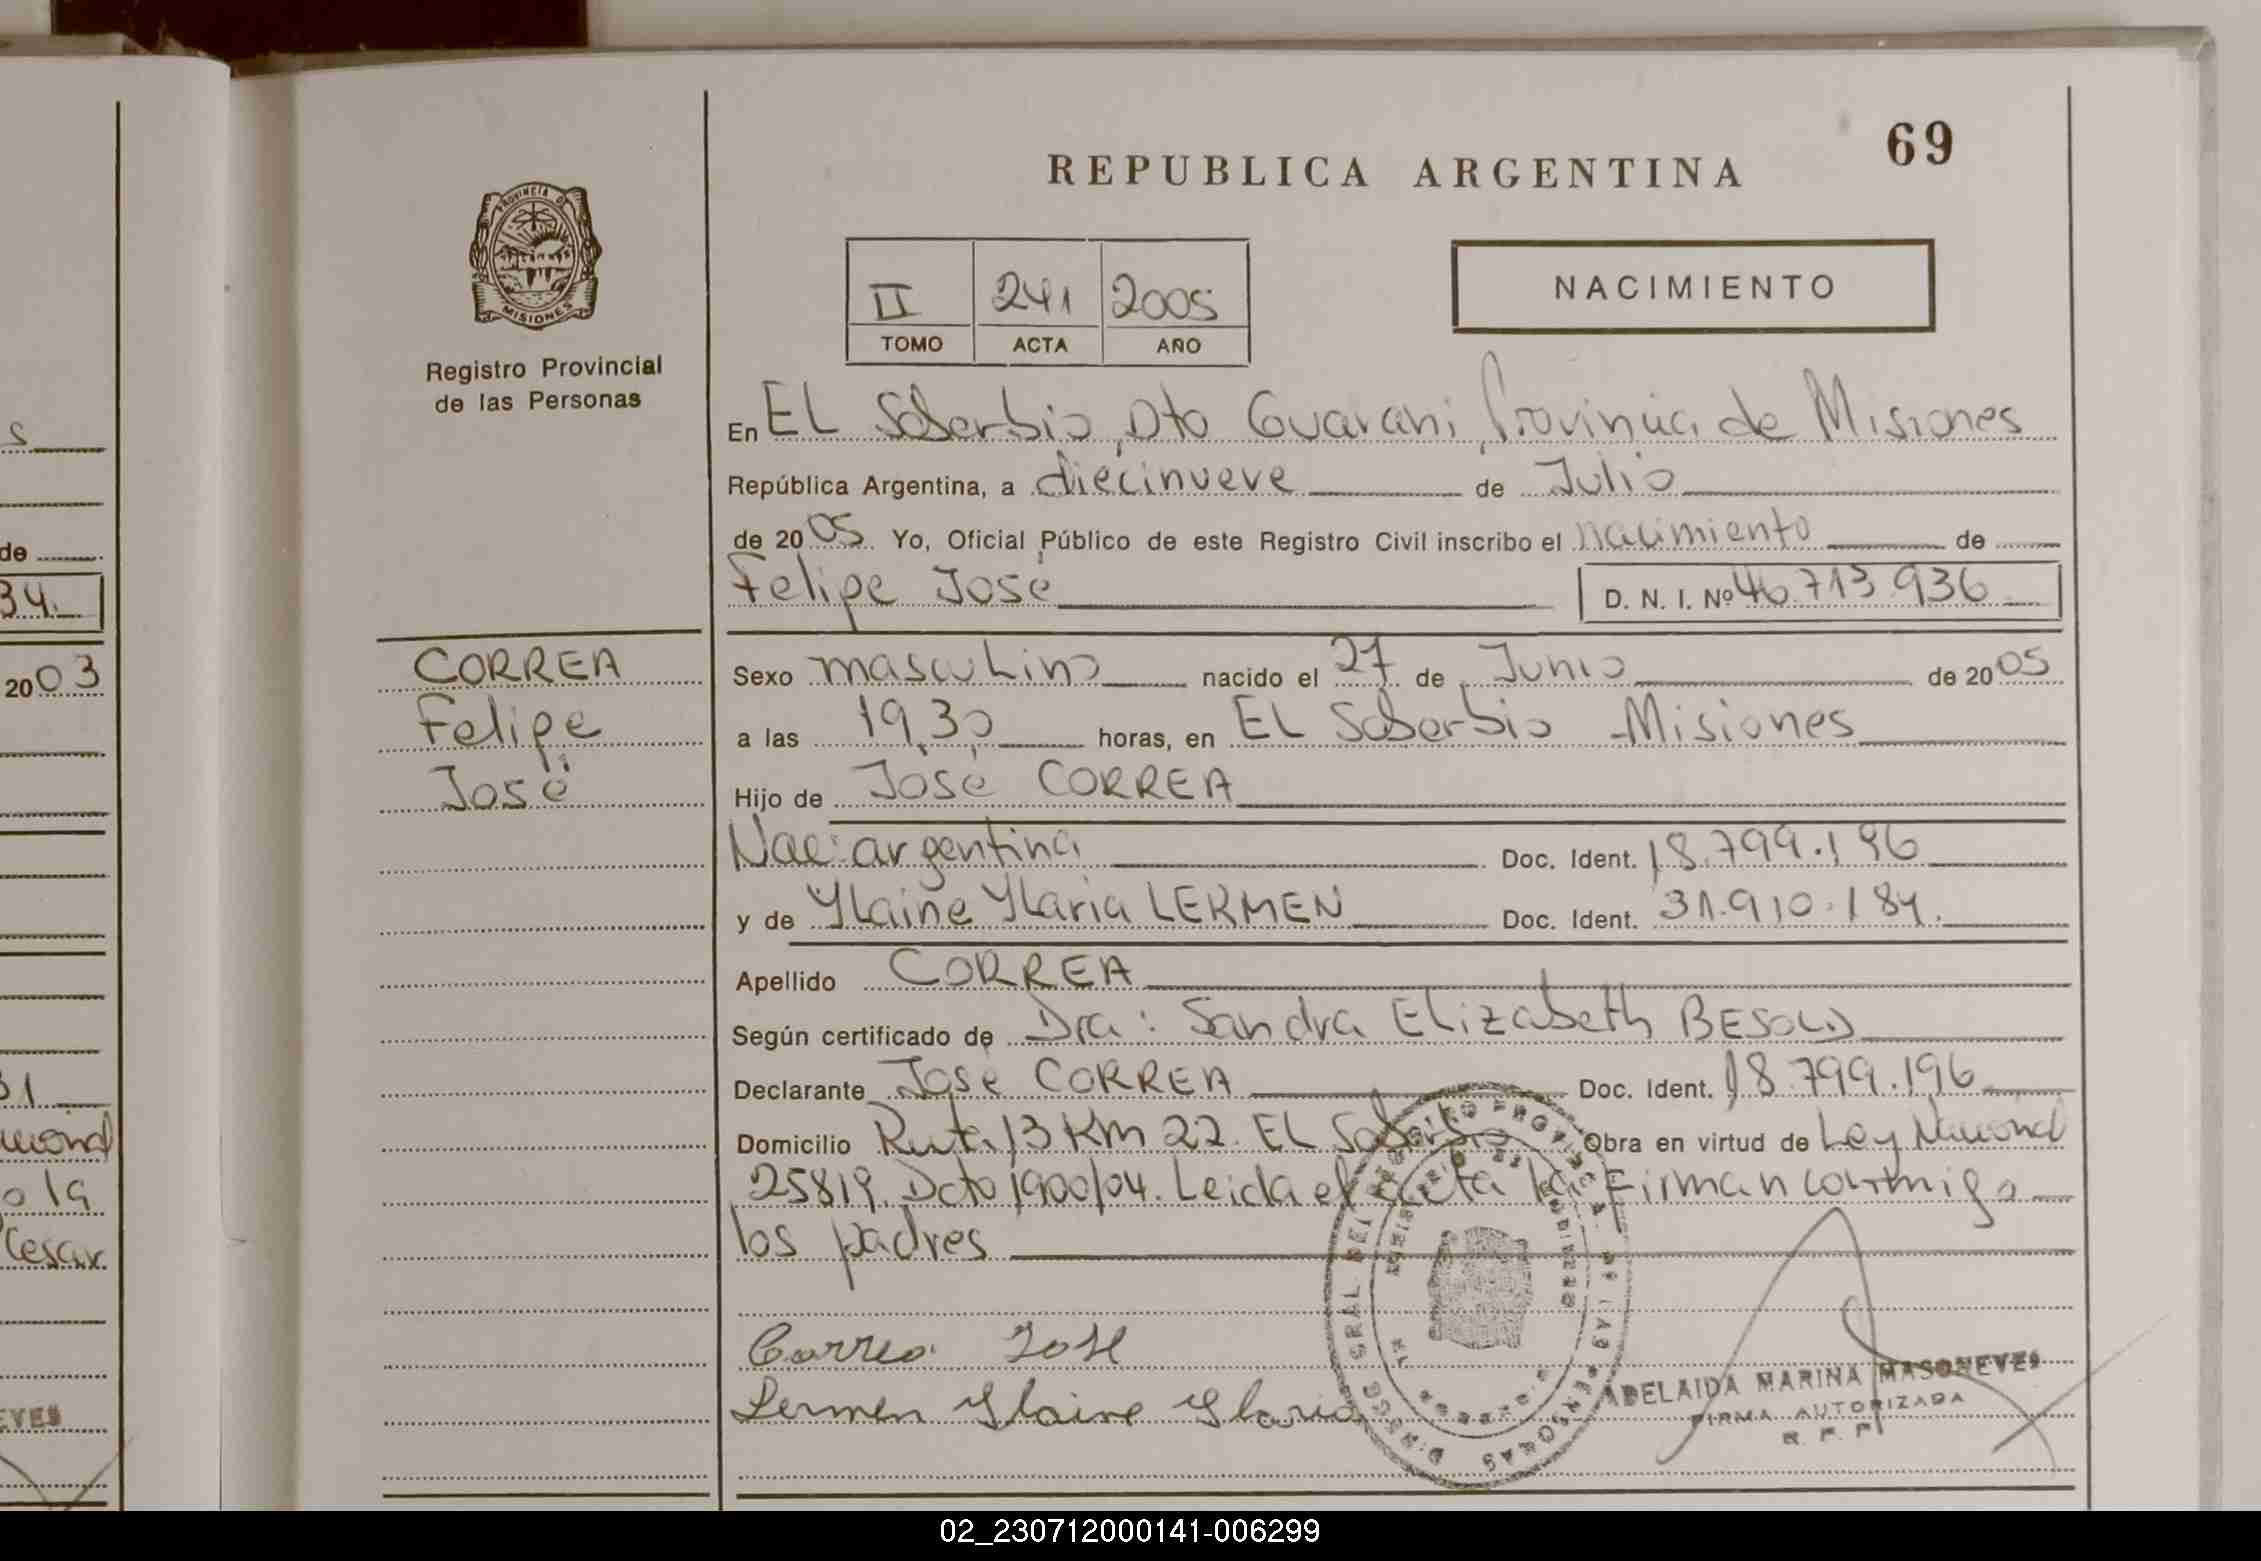 69
REPUBLICA ARGENTINA
PROVINCIA DE
MISIONES
Registro Provincial
de las Personas
II 241 2005
TOMO ACTA AÑO
NACIMIENTO
En EL Soberbio, Dto Guarani, Provincia de Misiones
República Argentina, a diecinueve de Julio
de 2005 Yo, Oficial Público de este Registro Civil inscribo el nacimiento de
Felipe José D. N. I. Nº 46.713.936
CORREA
Felipe
José
Sexo masculino nacido el 27 de Junio de 2005
a las 19,30 horas, en EL Soberbio - Misiones
Hijo de José CORREA
Nac: argentina Doc. Ident. 18.799.196
y de Ylaine Ylaria LERMEN Doc. Ident. 31.910.184.
Apellido CORREA
Según certificado de Dra: Sandra Elizabeth BESOLD
Declarante José CORREA Doc. Ident. 18.799.196
Domicilio Ruta 13 Km 22. EL Soberbio Obra en virtud de Ley Nacional
25819. Dcto 1900/04. Leida el acta la Firman conmigo
los padres
Correa José
Lermen Ylaine Ylaria
ADELAIDA MARINA MASONEVES
FIRMA AUTORIZADA
R. P. P.
s
de
34.
2003
31
Nacional
o la
Cesar
EVES
02_230712000141-006299